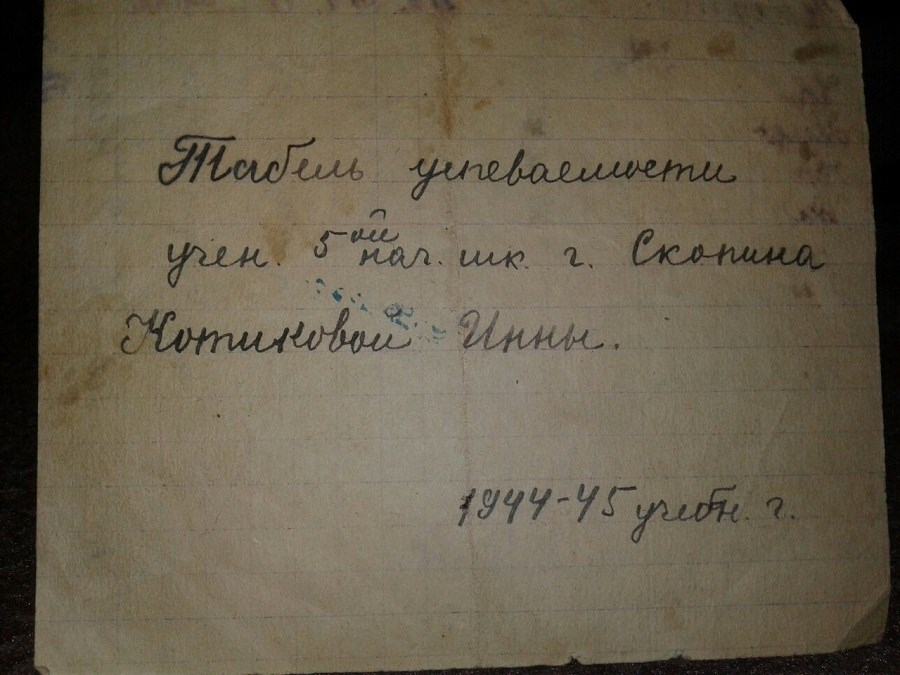 Табель успеваемости
учен. 5ой нач. шк. г. Скопина
Котиковой Инны.
1944-45 учебн. г.